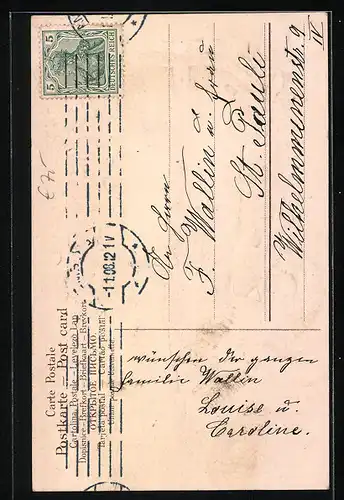 Carte Postale
Postkarte – Post card
Cartolina Postale – Levelező Lap
Dopisnice – Brefkort – Briefkaart – Brevkort
ОТКРЫТОЕ ПИСЬМО
Tarjeta postal – Cartão postal
5 5
DEUTSCHES REICH
-1.1.08.12-1V
€ 7,-
An Herrn
F. Wallin u. Frau
St. Pauli
Wilhelminenstr. 9
IV
wünschen der ganzen
Familie Wallin
Louise u.
Caroline.